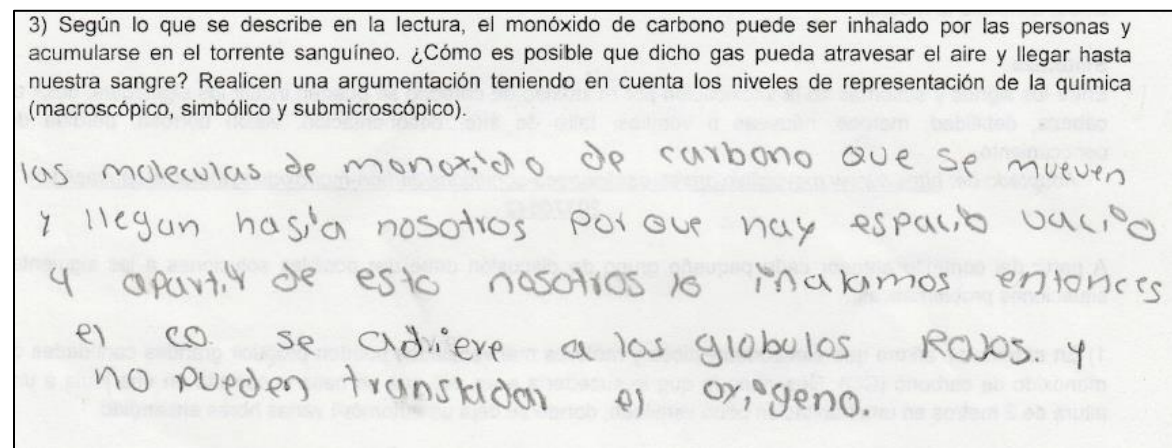 3) Según lo que se describe en la lectura, el monóxido de carbono puede ser inhalado por las personas y
acumularse en el torrente sanguíneo. ¿Cómo es posible que dicho gas pueda atravesar el aire y llegar hasta
nuestra sangre? Realicen una argumentación teniendo en cuenta los niveles de representación de la química
(macroscópico, simbólico y submicroscópico).
las moleculas de monoxido de carbono que se mueven
y llegan hasta nosotros por que hay espacio vacio
y apartir de esto nosotros lo inalamos entonces
el co se adhiere a los globulos Rojos y
no pueden transtadar el oxigeno.